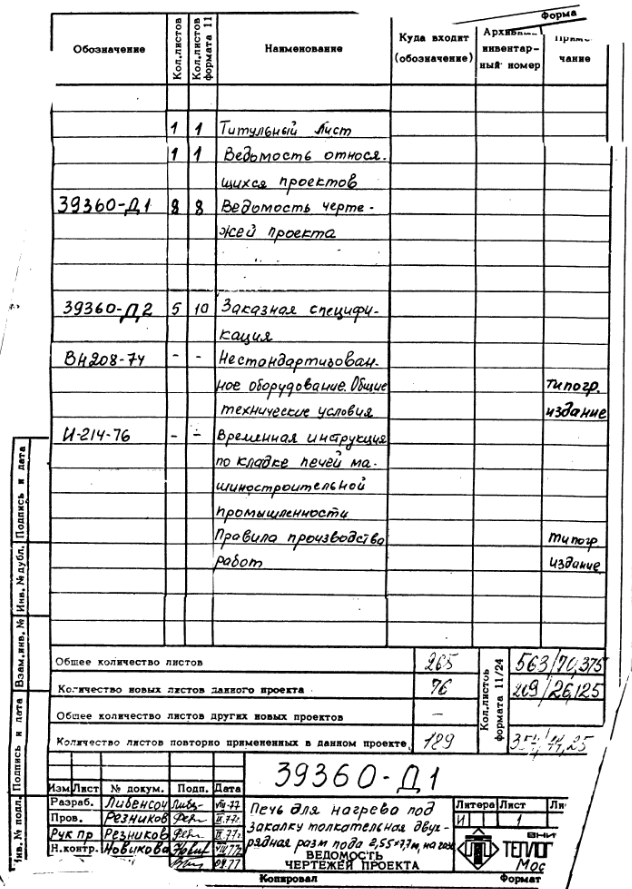 Форма
Обозначение
Кол.листов
Кол.листов формата 11
Наименование
Куда входит (обозначение)
инвентарный номер
чание
1 1 Титульный лист
1 1 Ведомость относя-
щихся проектов
39360-Д1 8 8 Ведомость черте-
жей проекта
39360-Д2 5 10 Заказная специфи-
кация
ВН208-74 - - Нестандартизован-
ное оборудование. Общие типогр.
технические условия издание
И-214-76 - - Временная инструкция
по кладке печей ма-
шиностроительной
промышленности
Правила производства типогр
работ издание
Общее количество листов 265
Количество новых листов данного проекта 76
Общее количество листов других новых проектов -
Количество листов повторно примененных в данном проекте 189
Кол.листов формата 11/24
563/70,375
209/26,125
Подпись и дата
Инв. № дубл.
Взам.инв. №
Подпись и дата
Инв. № подл.
39360-Д1
Изм Лист № докум. Подп. Дата
Разраб.
Пров. Резников
Рук пр Резников
Н.контр. Новикова
Печь для нагрева под
закалку толкательная двух-
рядная разм пода 2,55×7,7м, на газе
ВЕДОМОСТЬ
ЧЕРТЕЖЕЙ ПРОЕКТА
Литера Лист
И 1
ВНИ
ТЕПЛОП
Мос
Копировал
Формат